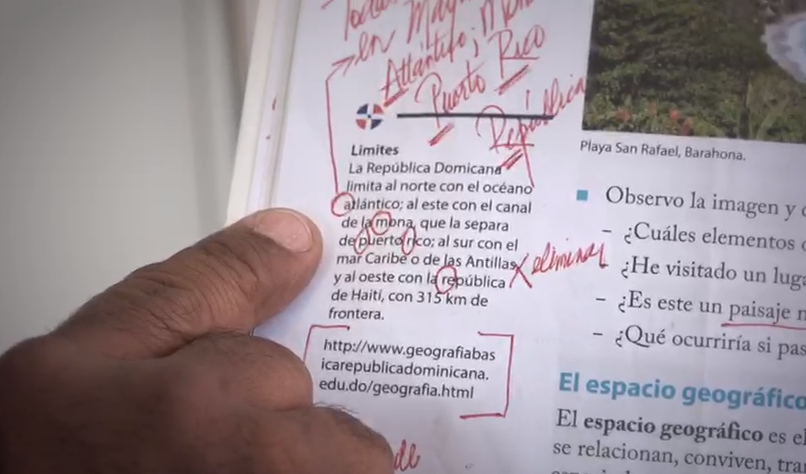 Todas
en May
Atlántico; Mona
Puerto Rico
República
Limites
La República Domicana
limita al norte con el océano
atlántico; al este con el canal
de la mona, que la separa
de puerto rico; al sur con el
mar Caribe o de las Antillas
y al oeste con la república
de Haití, con 315 km de
frontera.
X eliminar
http://www.geografiabas
icarepublicadominicana.
edu.do/geografia.html
de
Playa San Rafael, Barahona.
Observo la imagen y
– ¿Cuáles elementos
¿He visitado un
– ¿Es este un paisaje
– ¿Qué ocurriría si
El espacio geográfico
El espacio geográfico es
se relacionan, conviven,